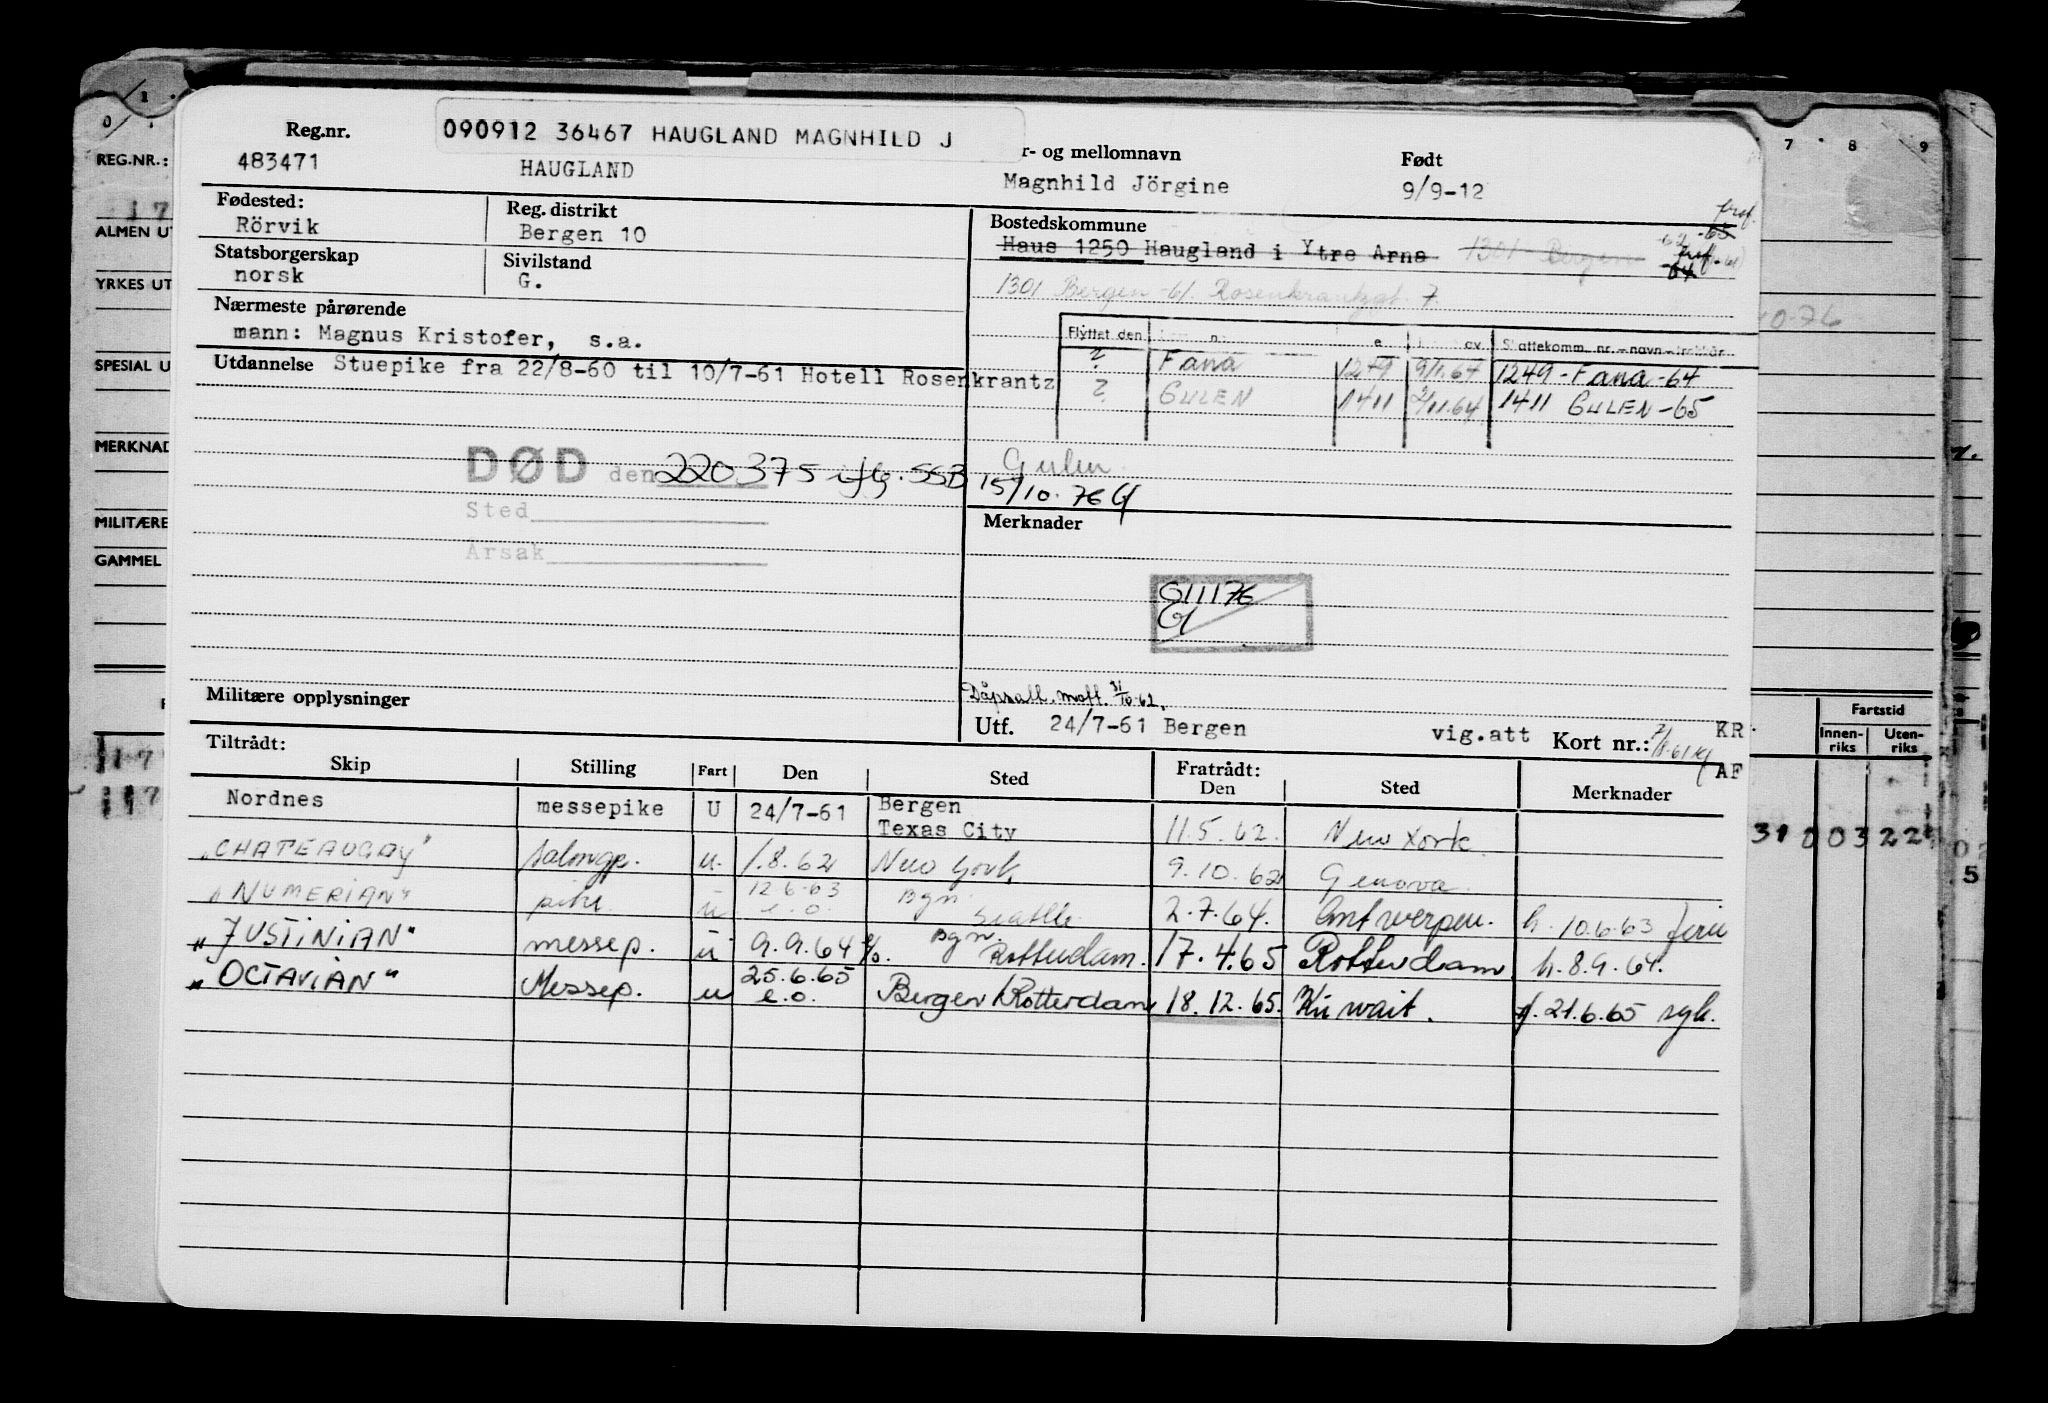 Reg.nr. 090912 36467 HAUGLAND MAGNHILD J r- og mellomnavn Født
483471 HAUGLAND Magnhild Jörgine 9/9-12
Fødested: Reg. distrikt Bostedskommune
Rörvik Bergen 10 Haus 1250 Haugland i Ytre Arna 1301 Bergen
Statsborgerskap Sivilstand
norsk G. 1301 Bergen -61. Rosenkrantzgt. 7.
Nærmeste pårørende
mann: Magnus Kristofer, s.a.
Flyttet den Skattekomm. nr.-navn-
Utdannelse Stuepike fra 22/8-60 til 10/7-61 Hotell Rosenkrantz
? Fana 1249 9/1.64 1249 - Fana -64
? GULEN 1411 2/11.64 1411 GULEN -65
DØD den 220375 iflg. SSB Gulen
15/10.76 G
Sted
Årsak
Merknader
011176
G
Militære opplysninger
Dåpsatt. mott. 31/10-62.
Utf. 24/7-61 Bergen vig.att Kort nr.: KR
AF
Tiltrådt: Fratrådt:
Skip Stilling Fart Den Sted Den Sted Merknader
Nordnes messepike U 24/7-61 Bergen
Texas City 11.5.62. New York.
"CHATEAUGAY" salongp. u. 1.8.62 New York 9.10.62 Genova.
"NUMERIAN" pike u 12.6.63 e.o. Bgn. Seattle 2.7.64. Antwerpen. h. 10.6.63 ferie
"JUSTINIAN" messep. u 9.9.64 e/o. Bgn. Rotterdam. 17.4.65 Rotterdam h. 8.9.64.
"OCTAVIAN" Messep. u 25.6.65 e.o. Bergen/Rotterdam 18.12.65. Kuwait. f. 21.6.65 syk.
REG.NR.:
ALMEN UT
YRKES UT
SPECIAL U
MERKNAD
MILITÆRE
GAMMEL
7 8 9
Fartstid
Innen-riks Uten-riks
310 03 22
5